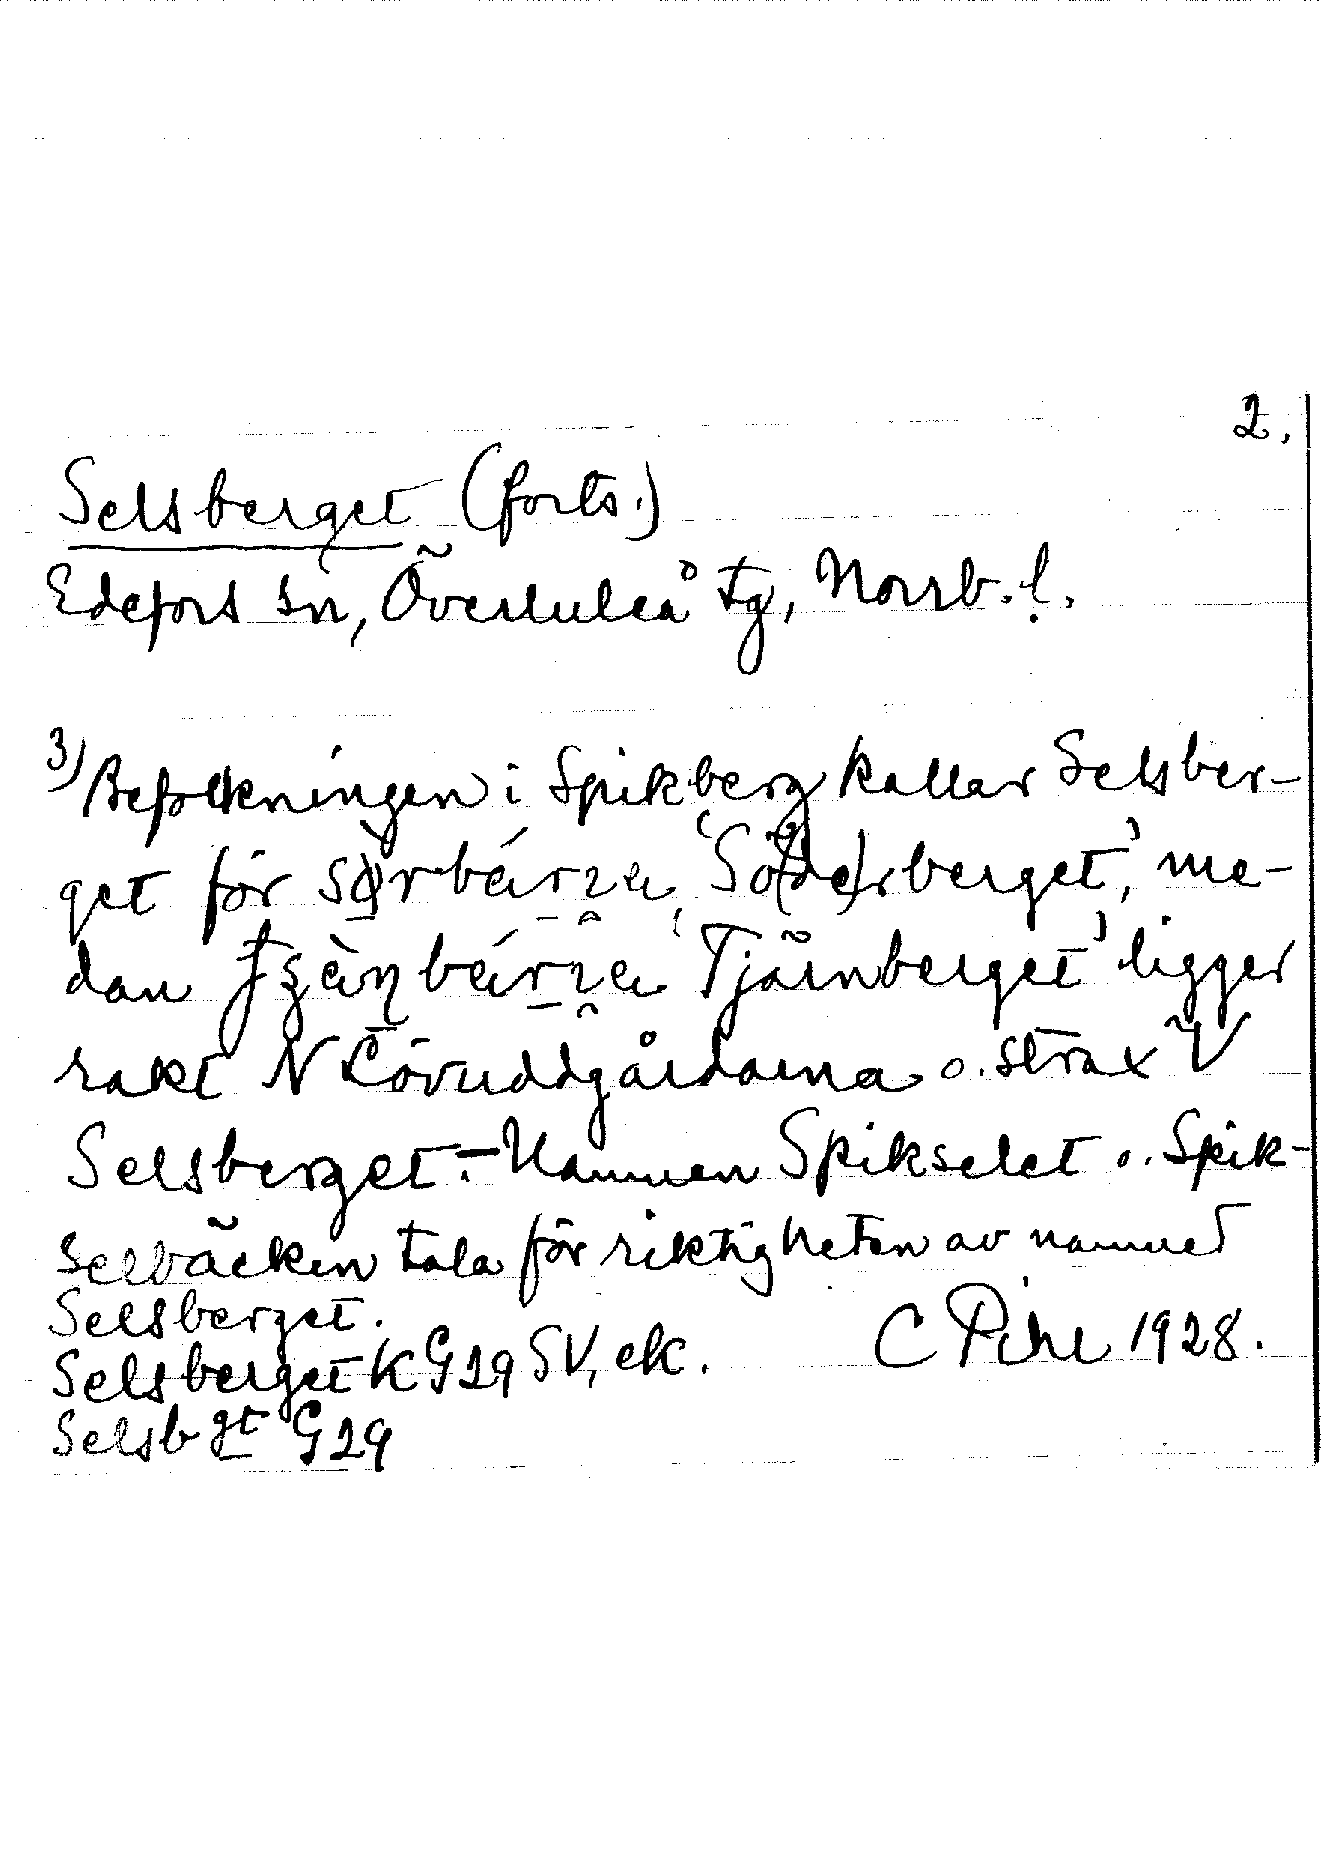 2.
Selsberget (forts.)
Edefors sn, Överluleå tg, Norrb. l.
3) Befolkningen i Spikberg kallar Selsber-
get för 'Sö(de)rberget', me-
dan 'Tjärnberget' ligger
rakt N Lövuddgårdarna o. strax V
Selsberget. - Namnen Spikselet o. Spik-
selbäcken tala för riktigheten av namnet
Selsberget.
Selsberget K G29 SV, ek. C Pihl 1928.
Selsbgt G29